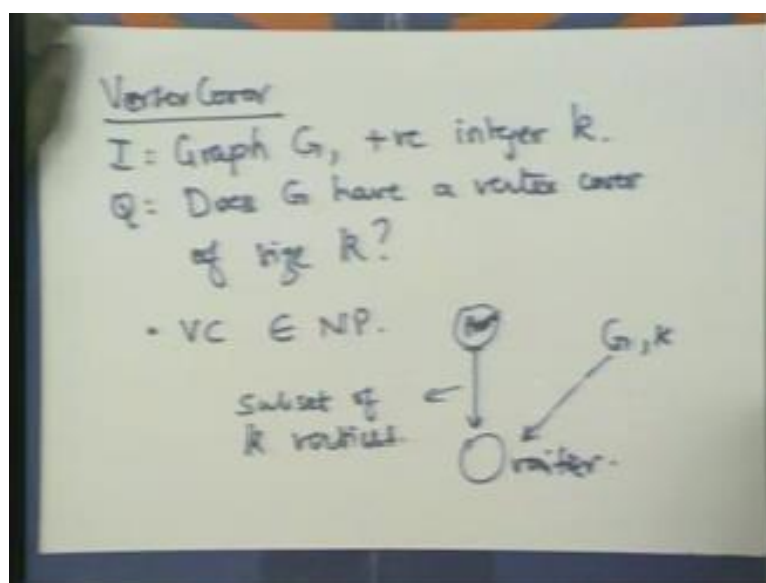 Vertex Cover
I: Graph G, +ve integer k.
Q: Does G have a vertex cover
of size k?
• VC ∈ NP.
G, k
subset of
k vertices
verifier.